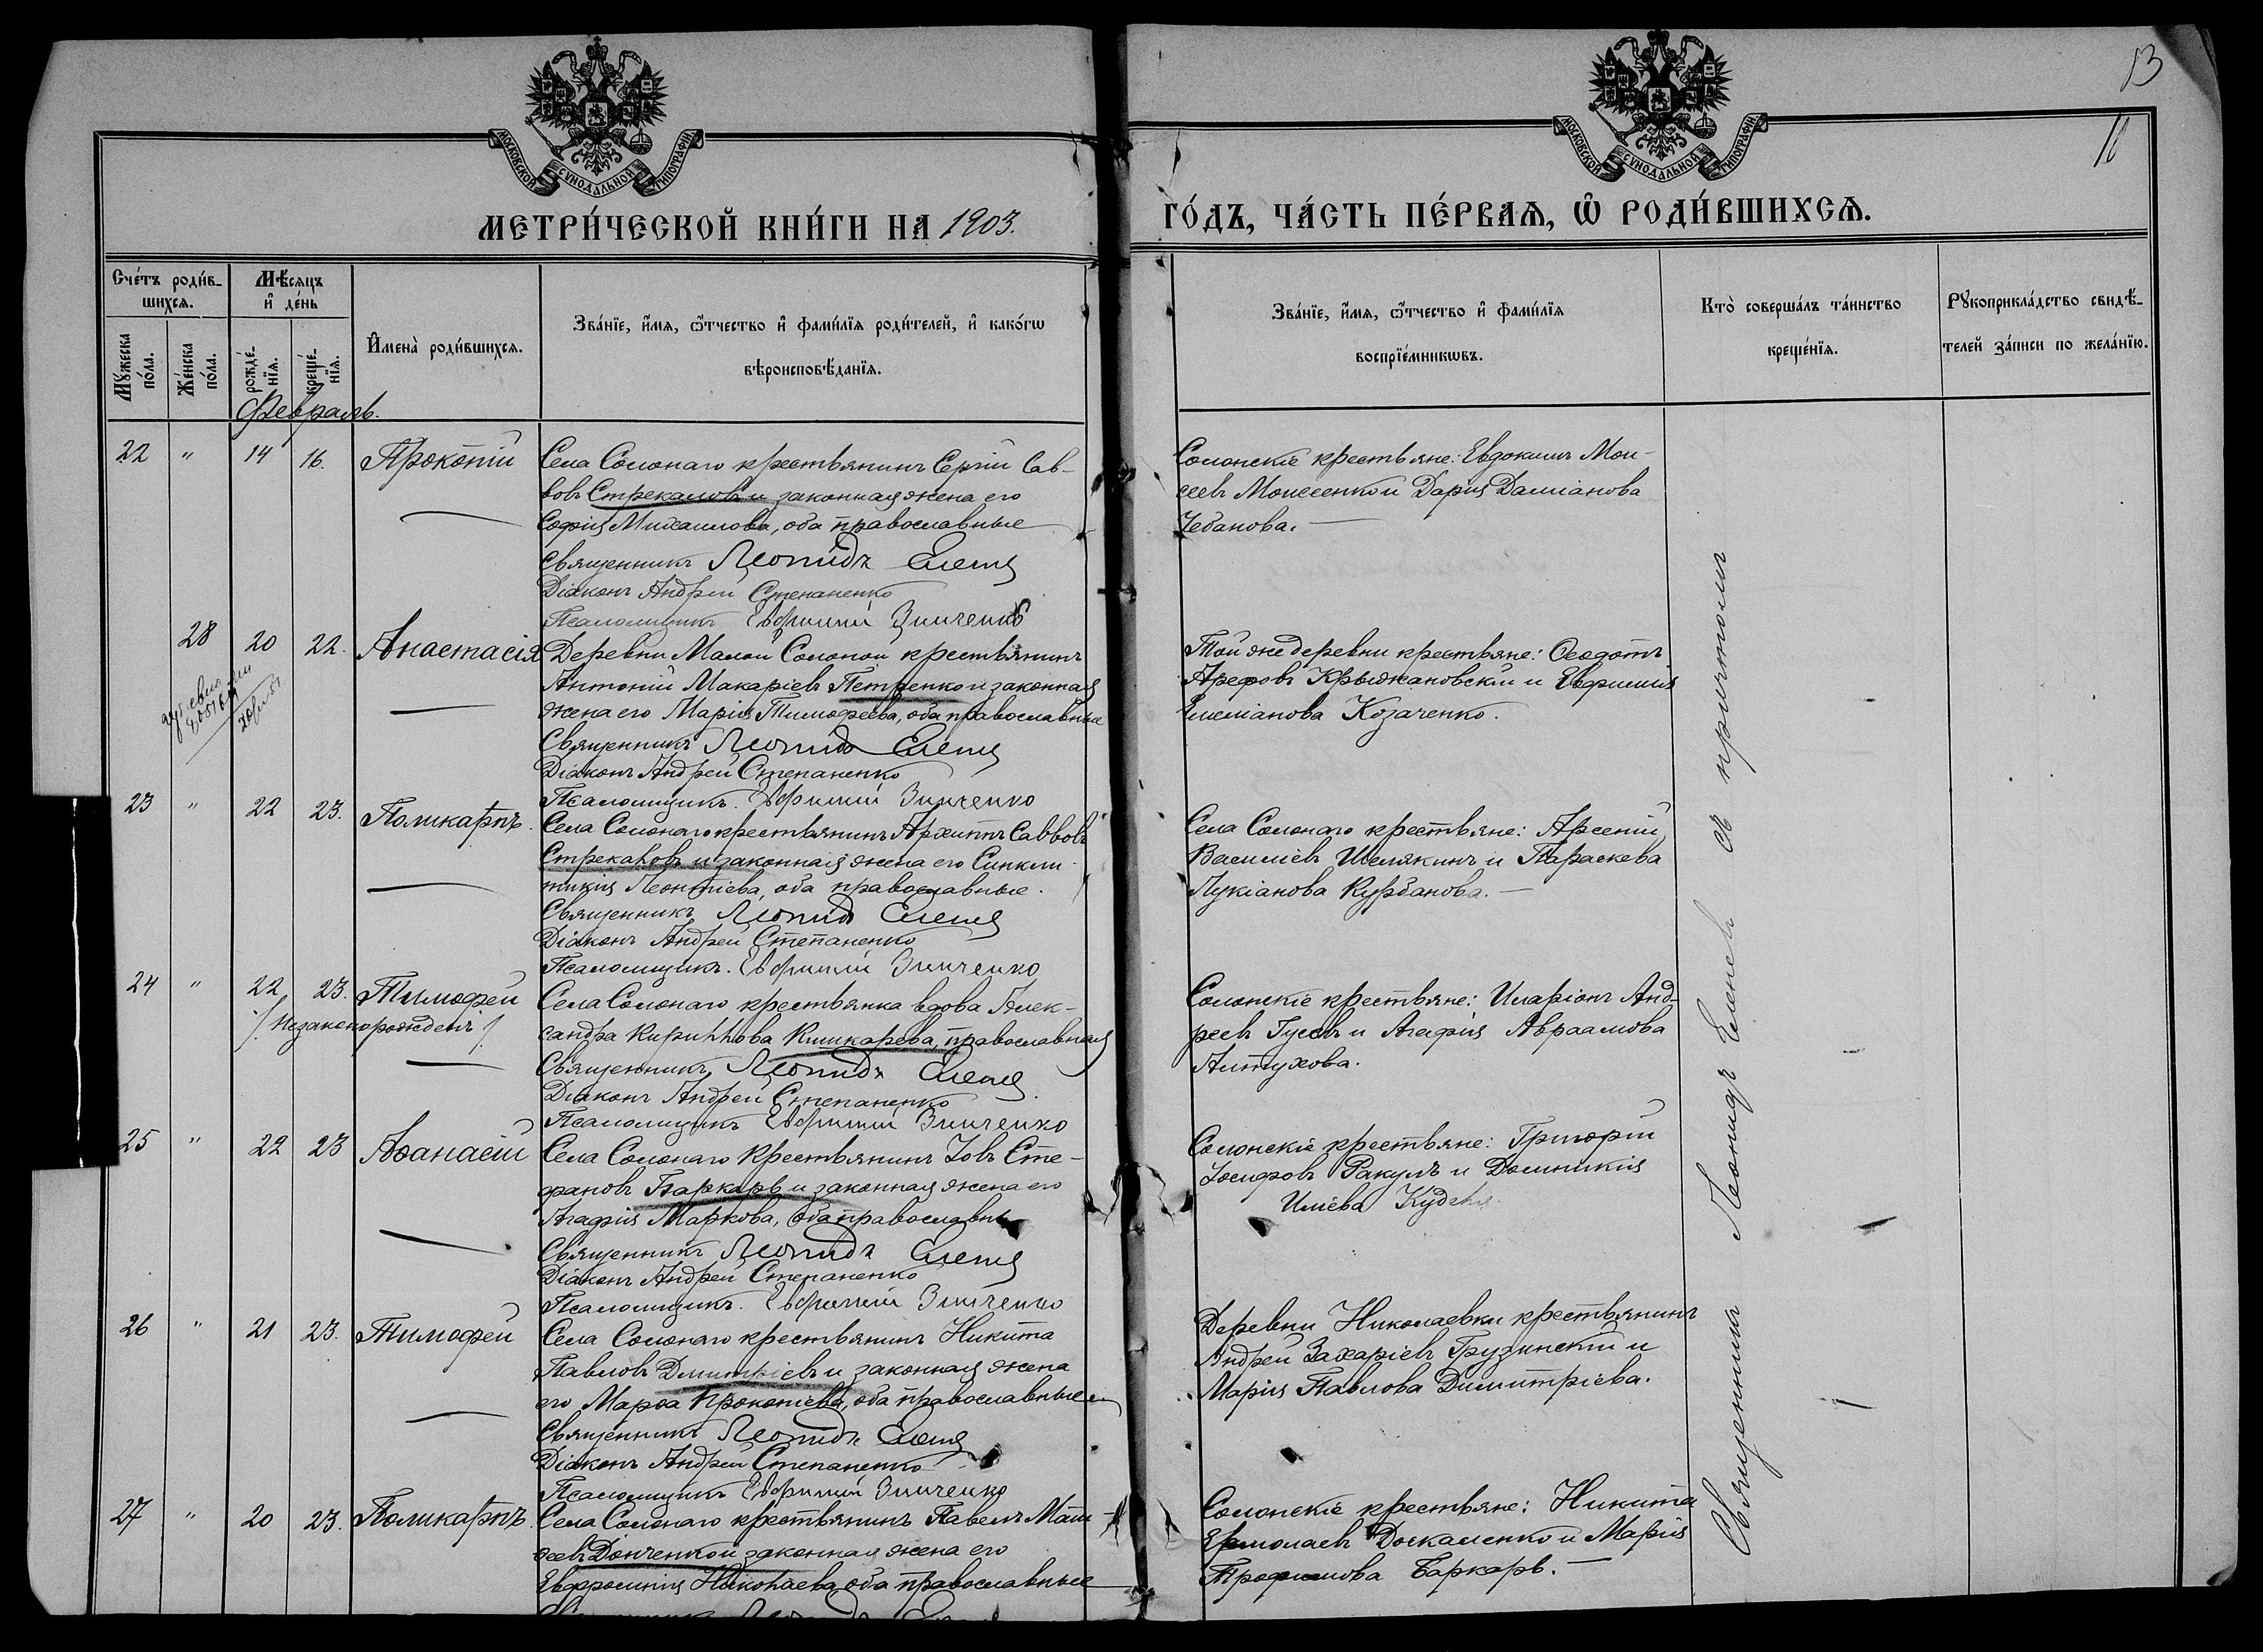 13
11
МОСКОВСКОЙ СУНОДАЛЬНОЙ ТИПОГРАФІИ
МОСКОВСКОЙ СУНОДАЛЬНОЙ ТИПОГРАФІИ
МЕТРИ́ЧЕСКОЙ КНИ́ГИ НА 1903.
ГО́ДЪ, ЧА́СТЬ ПЕ́РВАѦ, Ѽ РОДИ́ВШИХСѦ.
Сче́тъ роди́в-
шихсѧ.
Мѣ́сѧцъ
и҆ де́нь
И҆мена̀ роди́вшихсѧ.
Зва́нїе, и҆́мѧ, ѻ҆́тчество и҆ фами́лїѧ роди́телей, и҆ како́гѡ
вѣроисповѣ́данїѧ.
Мꙋ́жеска по́ла.
Же́нска по́ла.
рожде́-нїѧ.
креще́-нїѧ.
Зва́нїе, и҆́мѧ, ѻ҆́тчество и҆ фами́лїѧ
воспрїе́мникѡвъ.
Кто̀ соверша́лъ та́инство
креще́нїѧ.
Рꙋкоприкла́дство свидѣ́-
телей за́писи по жела́нїю.
Февраль.
22 " 14 16. Прокопій Села Солонаго крестьянинъ Сергій Сав-
вовъ Стрекаловъ и законная жена его
Софія Михаилова, оба православные
Священникъ Леонидъ Еленев
Діаконъ Андрей Степаненко
Псаломщикъ Евфимій Зинченко
Солонскіе крестьяне: Евдокимъ Мои-
сеевъ Моисеенко и Дарія Даміанова
Чебанова.
28 20 22. Анастасія Деревни Малой Солоной крестьянинъ
Антоній Макаріевъ Петренко и законная
жена его Марія Тимофеева, оба православные
Священникъ Леонидъ Еленев
Діаконъ Андрей Степаненко
Псаломщикъ. Евфимій Зинченко
Той же деревни крестьяне: Ѳеодотъ
Арефовъ Крыжановскій и Евфимія
Емеліанова Козаченко.
23 " 22 23. Поликарпъ. Села Солонаго крестьянинъ Архиппъ Саввовъ
Стрекаловъ и законная жена его Синкли-
тикія Леонтіева, оба православные.
Священникъ Леонидъ Еленев
Діаконъ Андрей Степаненко
Псаломщикъ. Евфимій Зинченко
Села Солонаго крестьяне: Арсеній
Василіевъ Шелякинъ и Параскева
Лукіанова Курбанова.
24 " 22 23. Тимофей Села Солонаго крестьянка вдова Алек-
/Незаконорожденъ/. сандра Кириллова Кишкарева, православная
Священникъ Леонидъ Еленев
Діаконъ Андрей Степаненко
Псаломщикъ Евфимій Зинченко
Солонскіе крестьяне: Иларіонъ Анд-
реевъ Гусевъ и Агафія Авраамова
Алтухова.
25 " 22 23 Аѳанасій Села Солонаго крестьянинъ Іовъ Сте-
фановъ Баркарь и законная жена его
Агафія Маркова, оба православные
Священникъ Леонидъ Еленев
Діаконъ Андрей Степаненко
Псаломщикъ. Евфимій Зинченко
Солонскіе крестьяне: Григорій
Іосифовъ Ракулъ и Домникія
Иліева
26 " 21 23. Тимофей Села Солонаго крестьянинъ Никита
Павловъ Димитріевъ и законная жена
его Марѳа Прокопіева, оба православные
Священникъ Леонидъ Еленев
Діаконъ Андрей Степаненко
Псаломщикъ Евфимій Зинченко
Деревни Николаевки крестьянинъ
Андрей Захаріевъ Грузинскій и
Марія Павлова Димитріева.
27 " 20 23. Поликарпъ. Села Солонаго крестьянинъ Павелъ Мат-
ѳеевъ Донченко и законная жена его
Евфросинія Николаева, оба православные
Солонскіе крестьяне: Никита
Ермолаевъ Доскаленко и Марія
Трофимова Баркарь.
Священникъ Леонидъ Еленевъ съ причтомъ